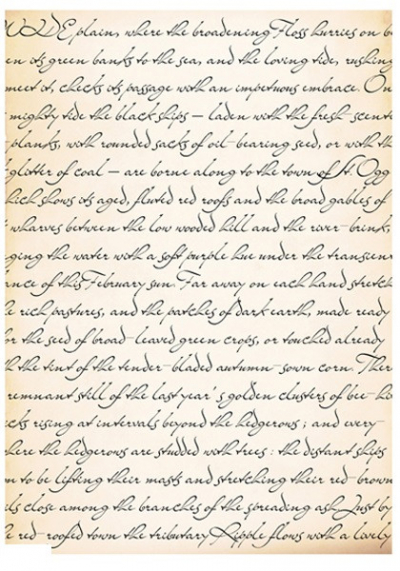 WIDE plain, where the broadening Floss hurries on b
en its green banks to the sea, and the loving tide, rushing
meet it, checks its passage with an impetuous embrace. On
mighty tide the black ships – laden with the fresh-scent
planks, with rounded sacks of oil-bearing seed, or with th
glitter of coal – are borne along to the town of St. Ogg
hich shows its aged, fluted red roofs and the broad gables of
wharves between the low wooded hill and the river-brink,
ging the water with a soft purple hue under the transien
ance of this February sun. Far away on each hand stretch
e rich pastures, and the patches of dark earth, made ready
or the seed of broad-leaved green crops, or touched already
h the tint of the tender-bladed autumn-sown corn. Ther
remnant still of the last year's golden clusters of bee-hi
cks rising at intervals beyond the hedgerows; and every
here the hedgerows are studded with trees: the distant ships
m to be lifting their masts and stretching their red-brown
ils close among the branches of the spreading ash. Just by
e red-roofed town the tributary Ripple flows with a lively